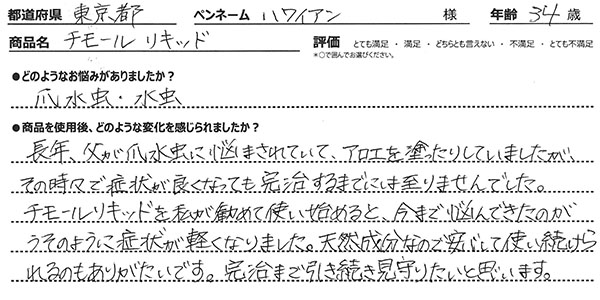 都道府県 東京都 ペンネーム ハワイアン 様 年齢 34 歳
商品名 チモールリキッド 評価 とても満足 ・ 満足 ・ どちらとも言えない ・ 不満足 ・ とても不満足
*○で囲んでお選びください。
●どのようなお悩みがありましたか？
爪水虫・水虫
●商品を使用後、どのような変化を感じられましたか？
長年、父が爪水虫に悩まされていて、アロエを塗ったりしていましたが、
その時々で症状が良くなっても完治するまでには至りませんでした。
チモールリキッドを私が勧めて使い始めると、今まで悩んできたのが
うそのように症状が軽くなりました。天然成分なので安心して使い続けら
れるのもありがたいです。完治まで引き続き見守りたいと思います。